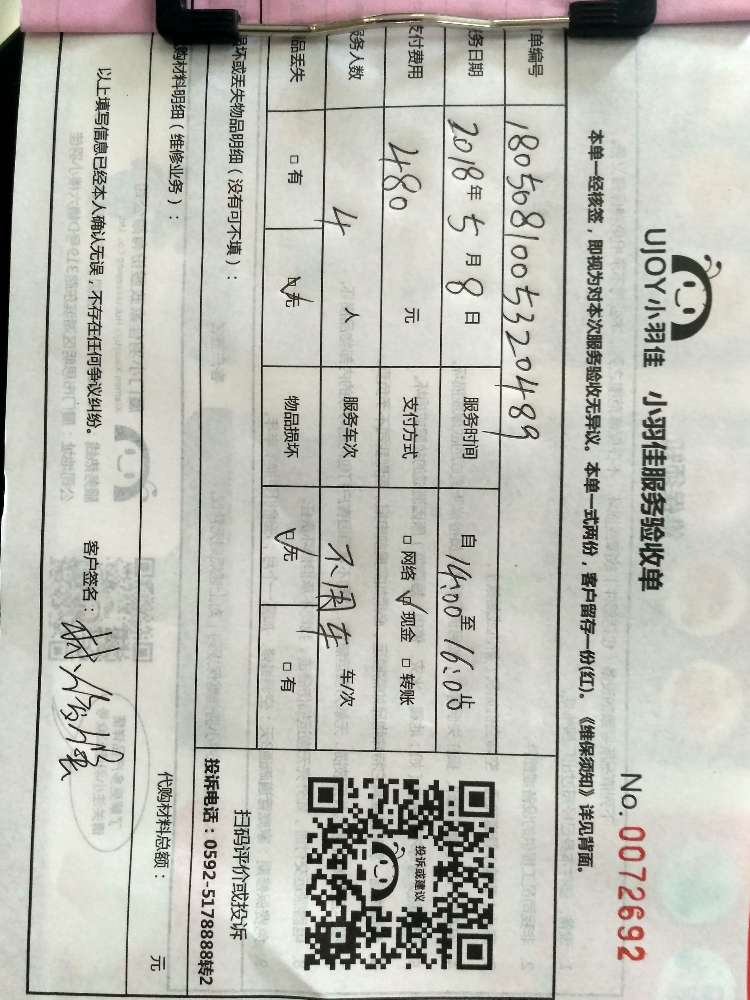 UJOY小羽佳 小羽佳服务验收单
No. 0072692
本单一经核签，即视为对本次服务验收无异议。本单一式两份，客户留存一份(红)。《维保须知》详见背面。
单编号 180508100532 0489
务日期 2018年5月8日 服务时间 自14:00至16:00止
支付费用 480元 支付方式 □网络 ☑现金 □转账
服务人数 4人 服务车次 不用车 车/次
品丢失 □有 ☑无 物品损坏 ☑无 □有
损坏或丢失物品明细（没有可不填）：
投诉或建议
扫码评价或投诉
投诉电话：0592-5178888转2
购材料明细（维修业务）：
代购材料总额： 元
以上填写信息已经本人确认无误，不存在任何争议纠纷。 客户签名：